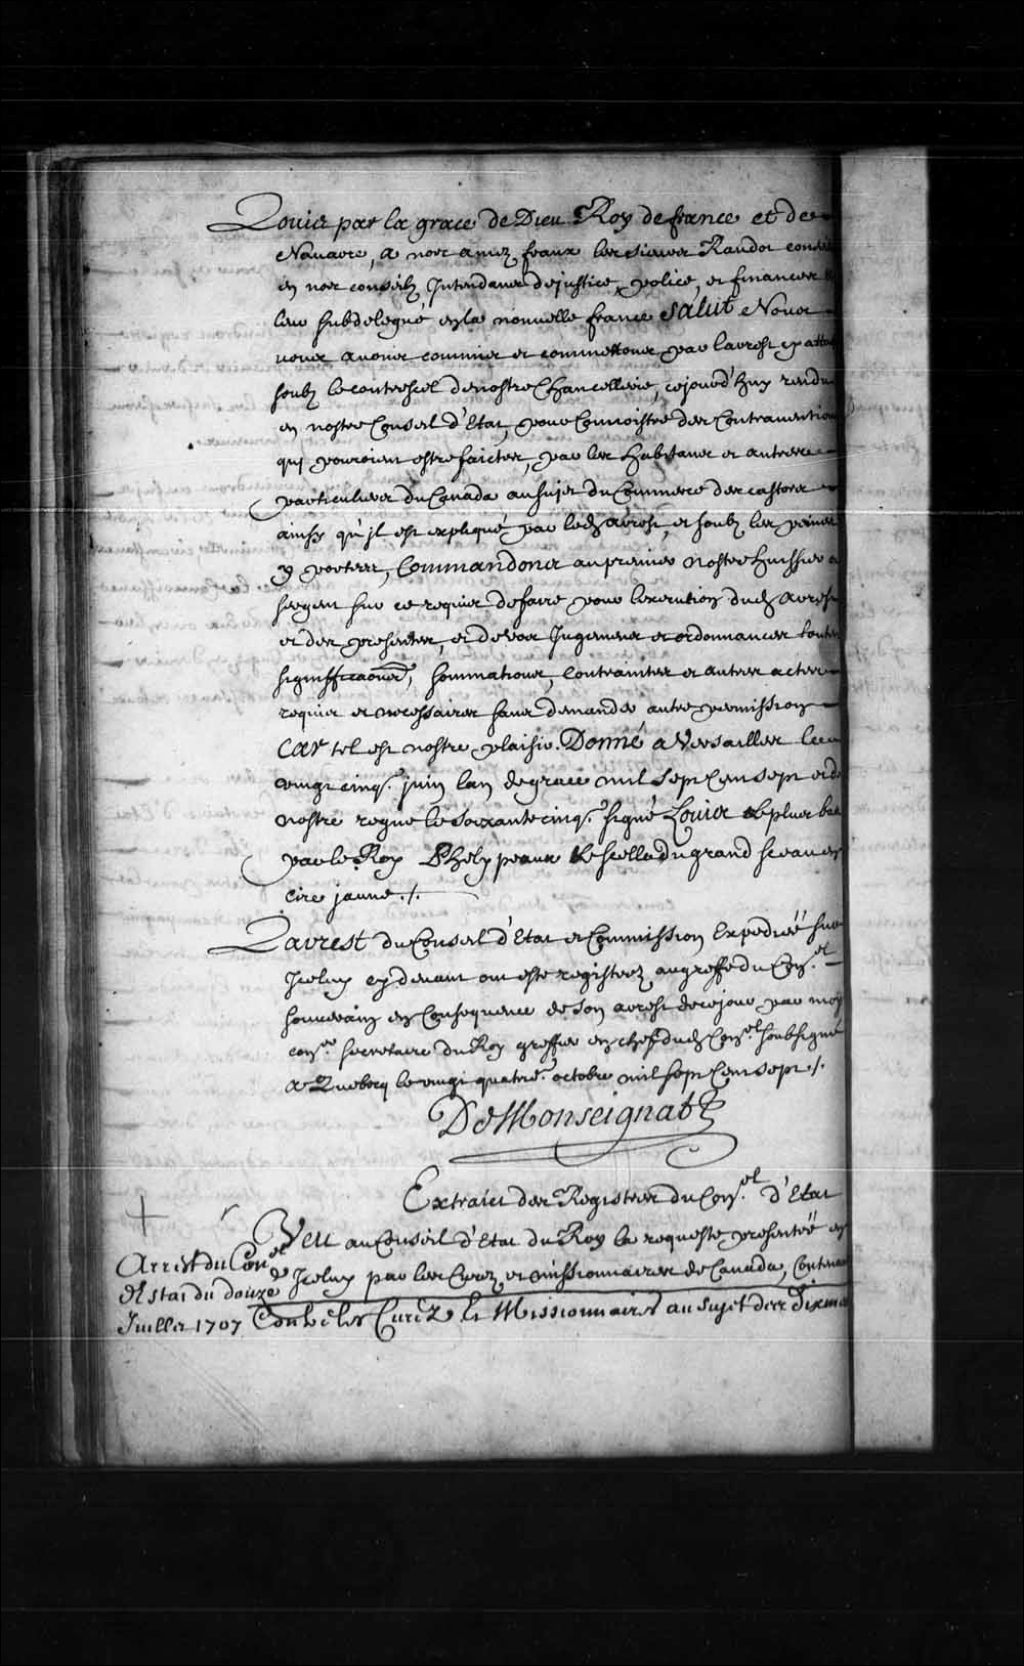 Louis par la grace de Dieu Roy de france et de
Navarre, a nos amez feaux les sieurs Raudot conse
en nos conseils Intendans de justice, police, et finances
leur subdelegué en la nouvelle france Salut Nous
vous avons commis et commettons par l'arrest cy atta
soubz le contrescel de nostre Chancellerie, cejourd'huy rendu
en nostre Conseil d'Etat, pour Connoistre des Contravention
qui pouroient estre faictes, par les habitans et autres
particuliers du Canada au sujet du Commerce des castors
ainsy qu'jl est expliqué par led. arrest, et soubz les peines
y portees, Commandons au premier nostre huissier o
sergent sur ce requis de faire pour l'execution dud. arrest
et des presentes, et de vos Jugemens et ordonnances toutes
signiffica͠ons, sommations, contraintes et autres actes
requis et necessaires sans demander autre permission
Car tel est nostre plaisir. Donné a Versailles le
vingt cinq.e juin l'an de grace mil sept Cens sept et de
nostre regne le soixante cinq.e signé Louis et plus bas
par le Roy Phelypeaux et scellé du grand sceau en
cire jaune ./.
L'arrest du Conseil d'Etat et Commission Expediéé sur
Jceluy cy devant ont esté registrez au greffe du Con.el
souverain en Consequence de son arrest de ce jour par moy
con.er secretaire du Roy greffier en chef dud. Con.el soubsigné
a Quebecq le vingt quatre.e octobre mil sept Cens sept ./.
De Monseignat
Extraict des Registres du Con.el d'Etat
Veu au Conseil d'Etat du Roy la requeste presentéé en
Jceluy par les Curez et missionnaires de Canada, Conten
Arrest du Con.el
d'Estat du douze
Juillet 1707 Contre les Curéz et Missionnaires au sujet des Dixmes